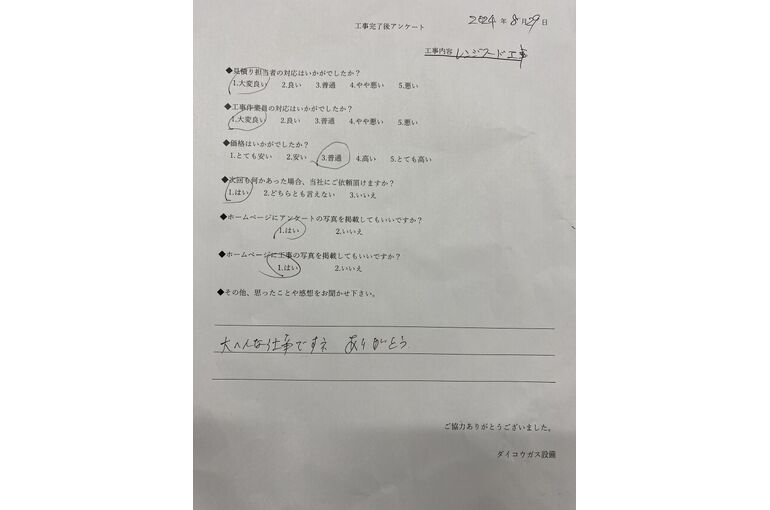 工事完了後アンケート
2024年8月29日
工事内容 レンジフード工事
◆見積り担当者の対応はいかがでしたか？
1.大変良い 2.良い 3.普通 4.やや悪い 5.悪い
◆工事作業員の対応はいかがでしたか？
1.大変良い 2.良い 3.普通 4.やや悪い 5.悪い
◆価格はいかがでしたか？
1.とても安い 2.安い 3.普通 4.高い 5.とても高い
◆次回も何かあった場合、当社にご依頼頂けますか？
1.はい 2.どちらとも言えない 3.いいえ
◆ホームページにアンケートの写真を掲載してもいいですか？
1.はい 2.いいえ
◆ホームページに工事の写真を掲載してもいいですか？
1.はい 2.いいえ
◆その他、思ったことや感想をお聞かせ下さい。
大へんな仕事ですネ ありがとう
ご協力ありがとうございました。
ダイコウガス設備